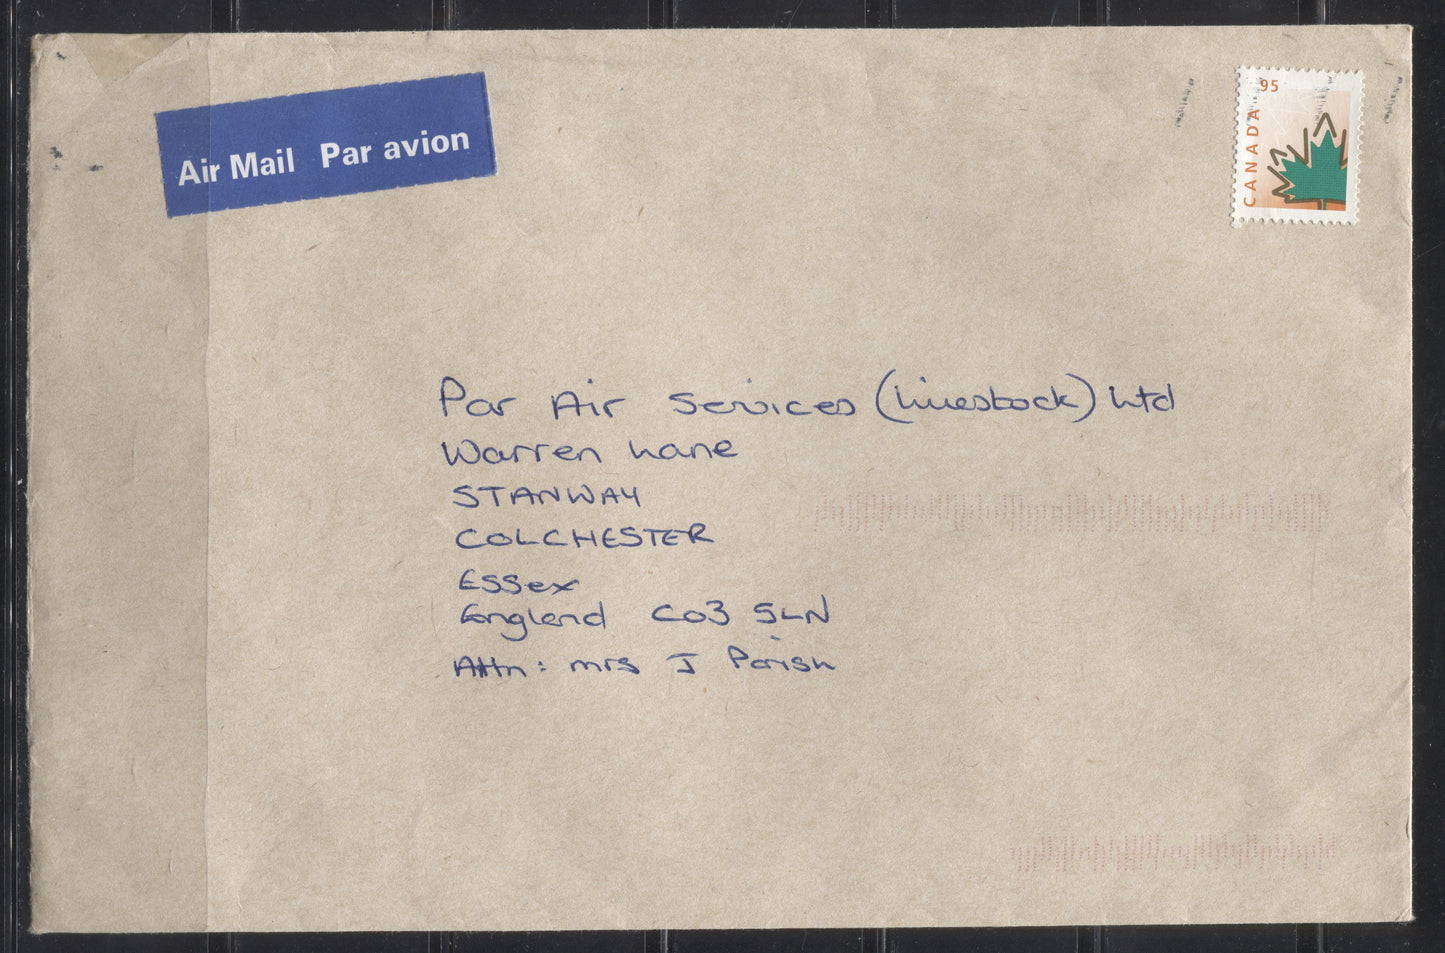 Air Mail Par avion
95
CANADA
Par Air Services (Livestock) Ltd
Warren Lane
STANWAY
COLCHESTER
Essex
England CO3 5LN
Attn: mrs J Parish